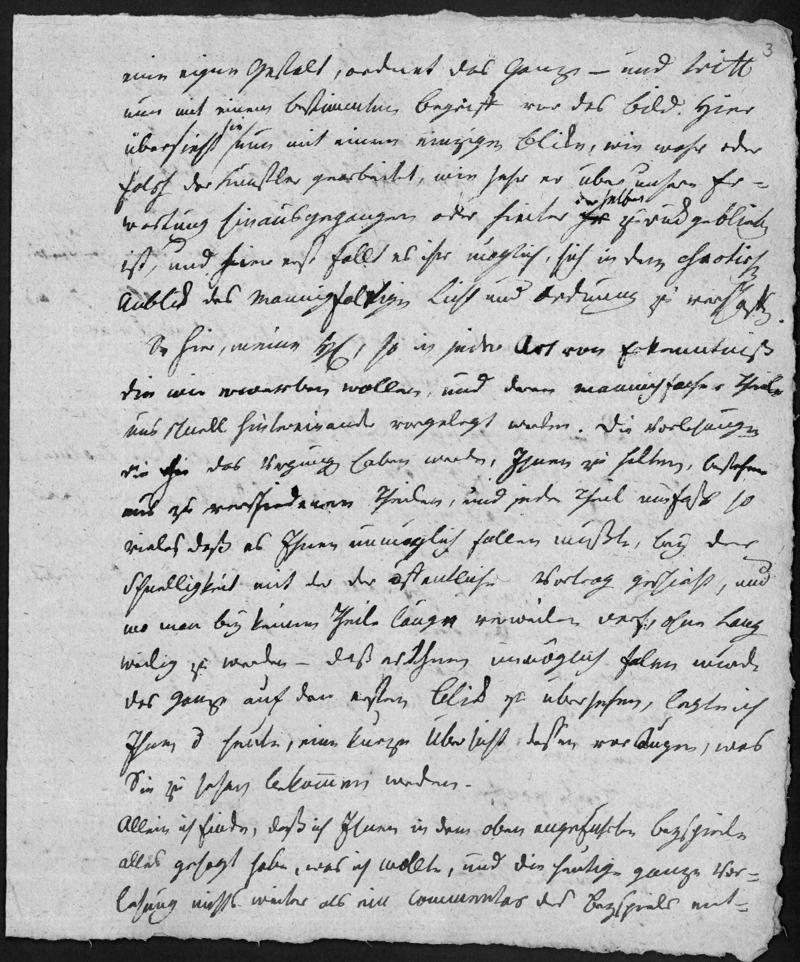 3
eine eigne Gestalt, ordnet das Ganze – und tritt
nun mit einem bestimmten Begriff vor das Bild. Hier
übersieht sie nun mit einem einzigen Blicke, wie wahr oder
falsch der Künstler gearbeitet, wie sehr er über unsere Er=
wartung hinausgegangen oder hinter derselben zurückgeblieben
ist, und hier erst fällt es ihr möglich, sich in dem chaotischen
Anblick des Mannigfaltigen Licht und Ordnung zu verschaffen.
So hier, meine so in jeder Art von Erkenntniß
die wir erwerben wollen, und deren mannichfache Theile
uns schnell hintereinander vorgelegt werden. Die Vorlesungen
die ich das Vergnügen haben werde, Ihnen zu halten, bestehen
aus zu verschiedenen Theilen, und jeder Theil umfaßt so
vieles daß es Ihnen unmöglich fallen müßte, bey der
Schnelligkeit mit der der öffentliche Vortrag geschieht, und
wo man bey keinem Theile länger verweilen darf, ohne lang
weilig zu werden – daß es Ihnen unmöglich fallen würde
das Ganze auf den ersten Blick zu übersehen, legte ich
Ihnen heute, eine kurze Übersicht dessen vor Augen, was
Sie zu sehen bekommen werden.
Allein ich finde, daß ich Ihnen in dem oben angeführten Beyspiele
alles gesagt habe, was ich wollte, und die heutige ganze Vor=
lesung nichts weiter als ein Commentar des Beyspiels ent=